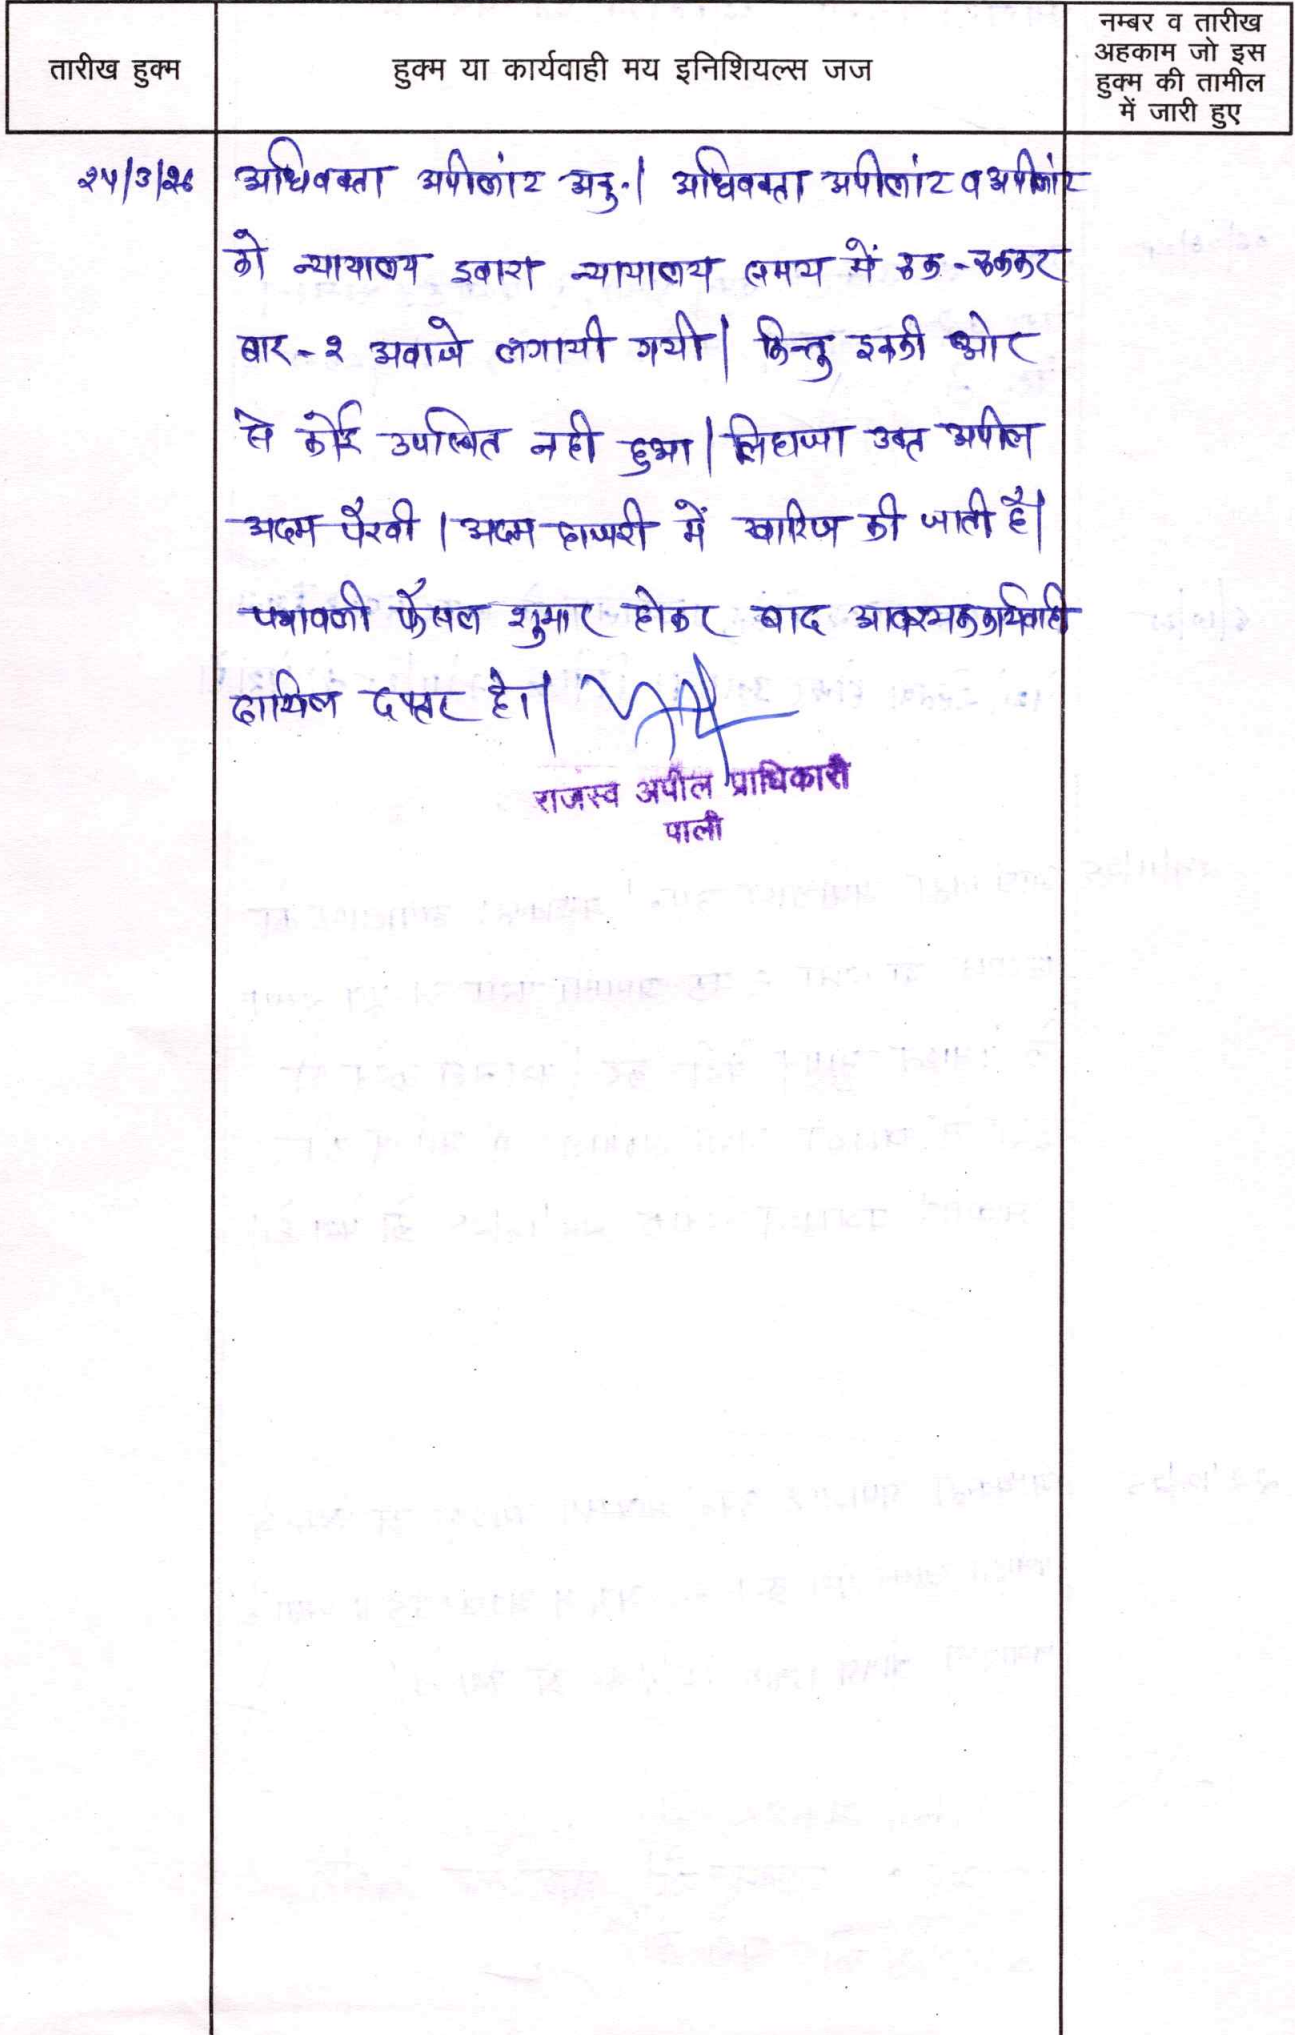 तारीख हुक्म
हुक्म या कार्यवाही मय इनिशियल्स जज
नम्बर व तारीख
अहकाम जो इस
हुक्म की तामील
में जारी हुए
२५/3/२६
अधिवक्ता अपीलांट अनु.। अधिवक्ता अपीलांट व अपीलांट
को न्यायालय द्वारा न्यायालय समय में रुक-रुककर
बार-२ अवाजे लगायी गयी। किन्तु इनकी ओर
से कोई उपस्थित नही हुआ। लिहाजा उक्त अपील
अदम पैरवी । अदम हाजरी में खारिज की जाती है।
पत्रावली फैसल शुमार होकर बाद आवश्यक कार्यवाही
दाखिल दफ्तर हो।
राजस्व अपील प्राधिकारी
पाली